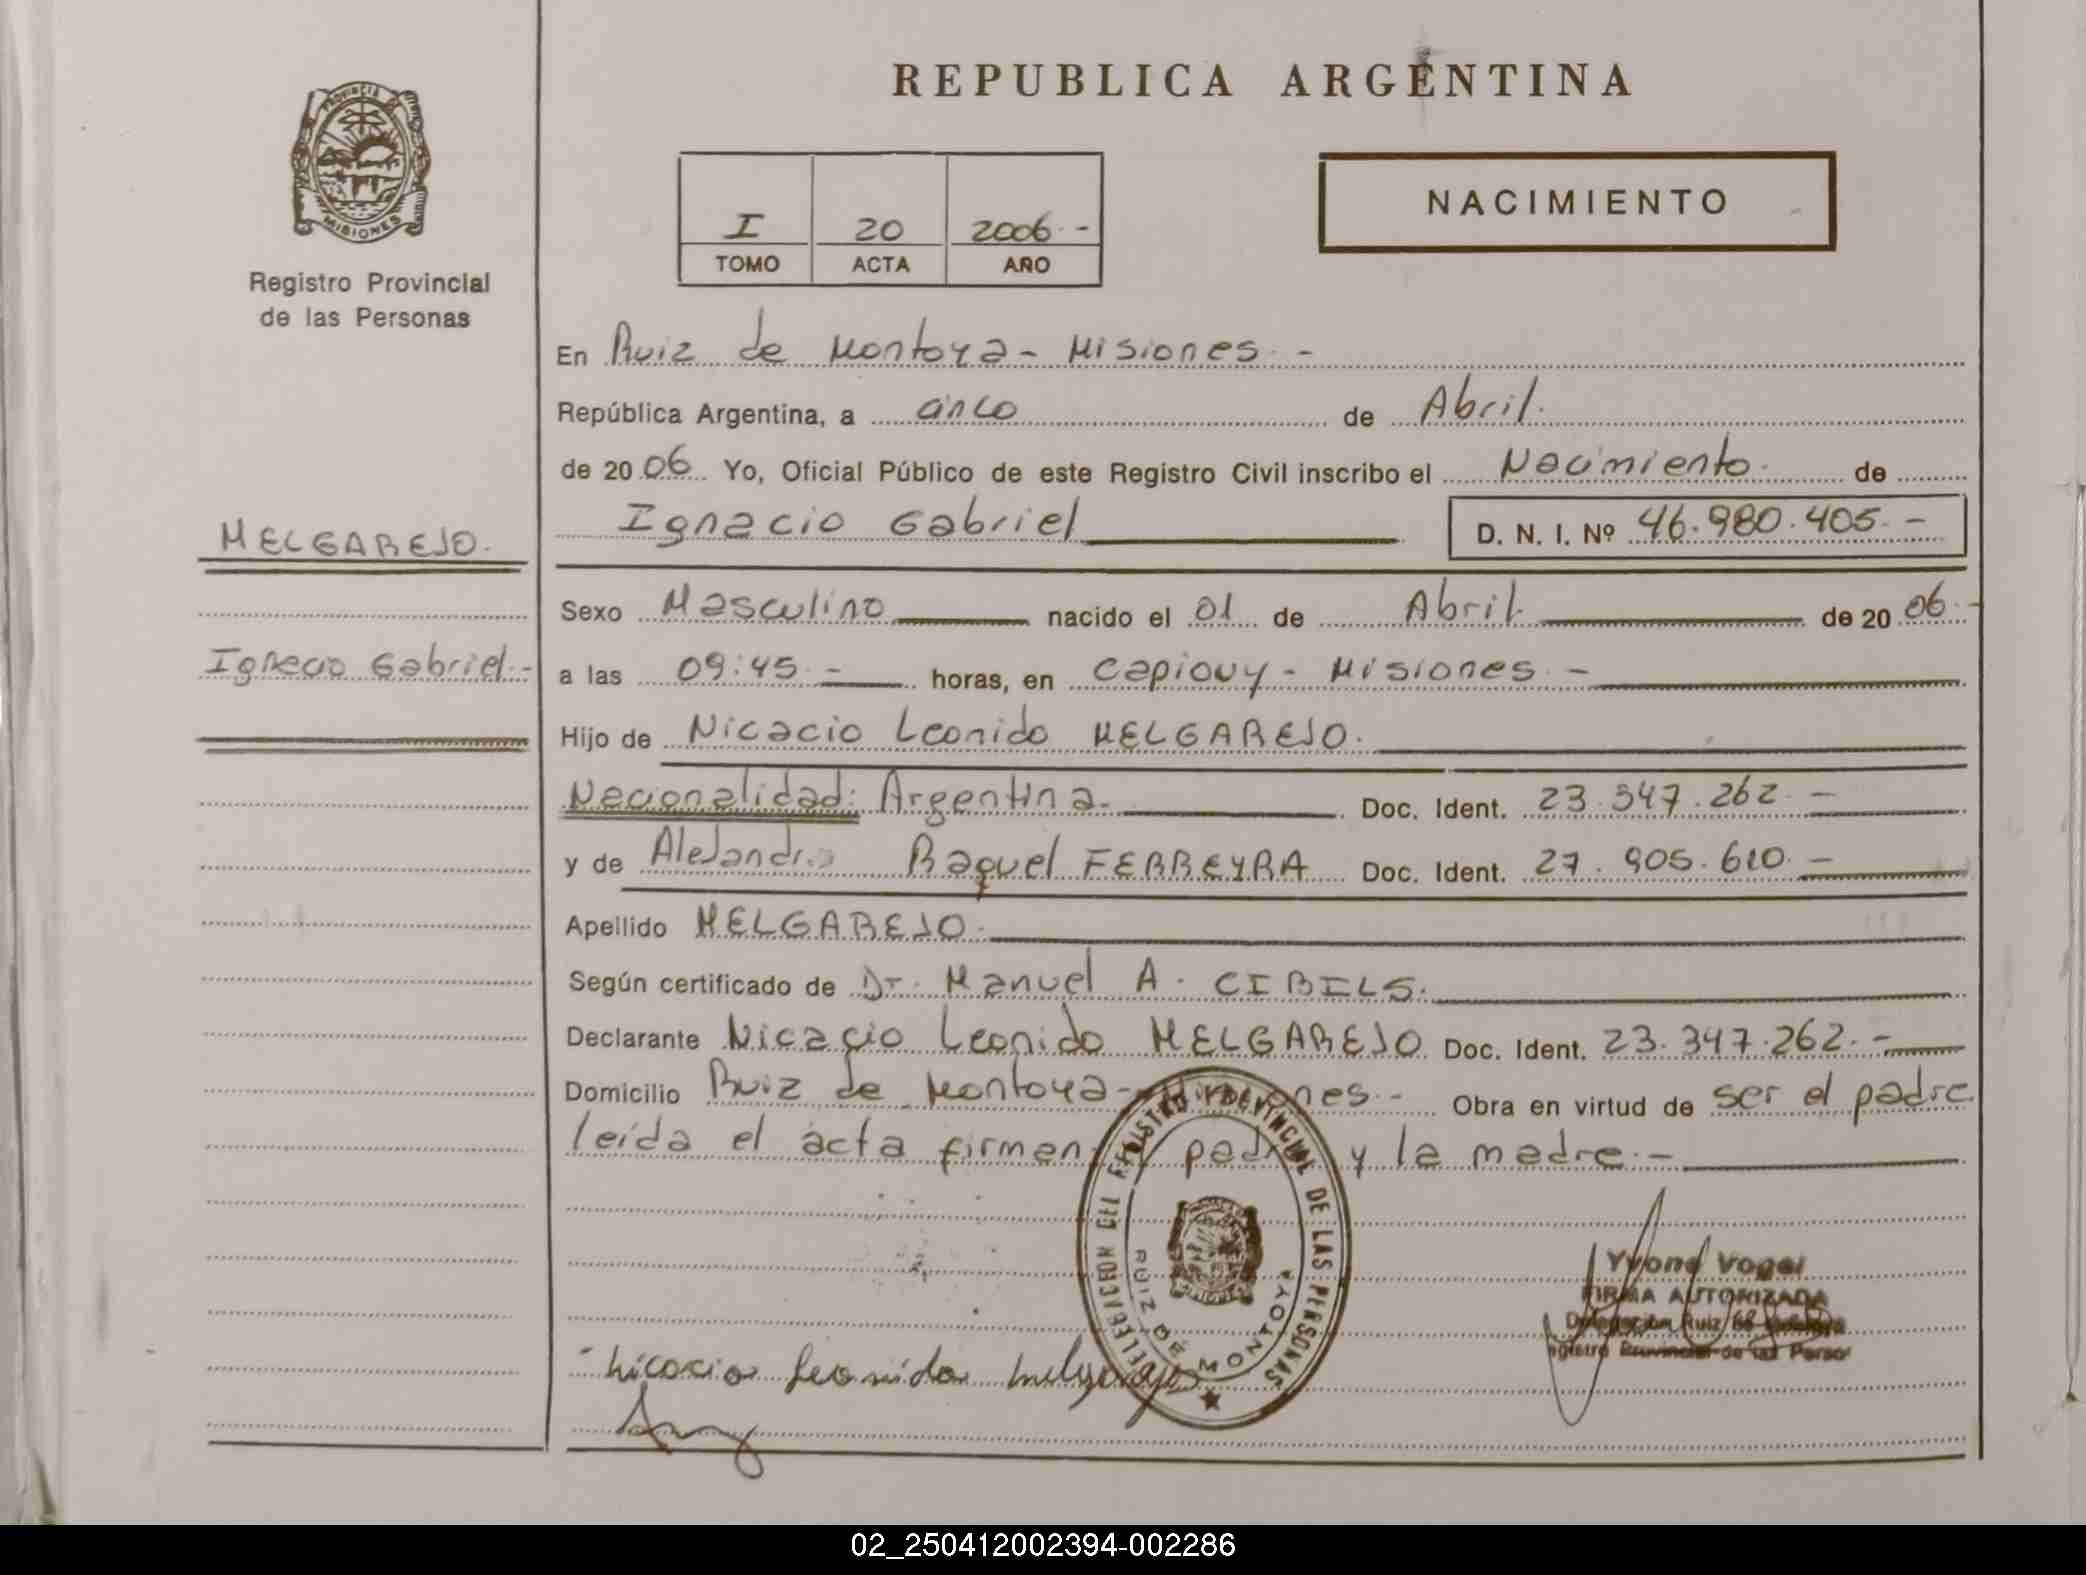 PROVINCIA DE MISIONES
Registro Provincial
de las Personas
MELGAREJO.
Ignacio Gabriel.-
REPUBLICA ARGENTINA
I 20 2006.-
TOMO ACTA AÑO
NACIMIENTO
En Ruiz de Montoya - Misiones.-
República Argentina, a cinco de Abril.
de 2006 Yo, Oficial Público de este Registro Civil inscribo el Nacimiento. de
Ignacio Gabriel D. N. I. Nº 46.980.405.-
Sexo Masculino nacido el 01 de Abril. de 2006.-
a las 09:45.- horas, en Capiovy - Misiones.-
Hijo de Nicacio Leonido MELGAREJO.
Nacionalidad: Argentina. Doc. Ident. 23.347.262.-
y de Alejandra Raquel FERREYRA Doc. Ident. 27.905.610.-
Apellido MELGAREJO.
Según certificado de Dr. Manuel A. CIBILS.
Declarante Nicacio Leonido MELGAREJO Doc. Ident. 23.347.262.-
Domicilio Ruiz de Montoya - Misiones.- Obra en virtud de ser el padre
leída el acta firman el padre y la madre.-
DELEGACION DEL REGISTRO PROVINCIAL DE LAS PERSONAS
RUIZ DE MONTOYA
Yvone Vogel
FIRMA AUTORIZADA
Delegación Ruiz de Montoya
Registro Provincial de las Personas
Nicacio Leonido Melgarejo
02_250412002394-002286